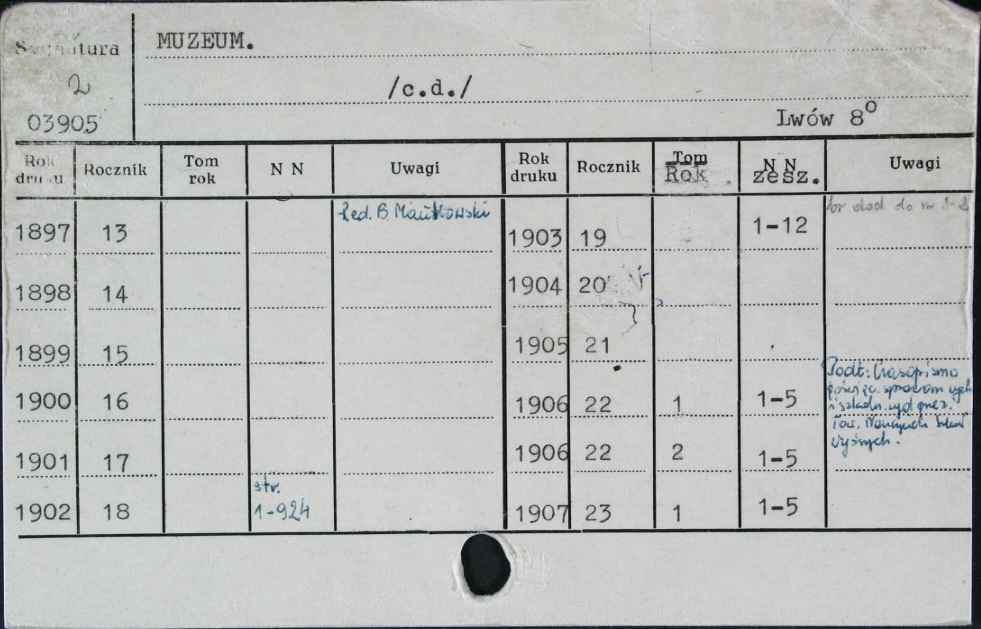 Sygnatura
MUZEUM.
2
/c.d./
03905
Lwów 8°
Rok druku Rocznik Tom rok N N Uwagi Rok druku Rocznik Tom Rok N N zesz. Uwagi
1897 13 Red. B. Mańkowski 1903 19 1-12 dod do nr
1898 14 1904 20
1899 15 1905 21
1900 16 1906 22 1 1-5 Podt: Czasopismo
1901 17 1906 22 2 1-5 Tow. Nauczycieli
wyższych.
1902 18 str. 1-924 1907 23 1 1-5